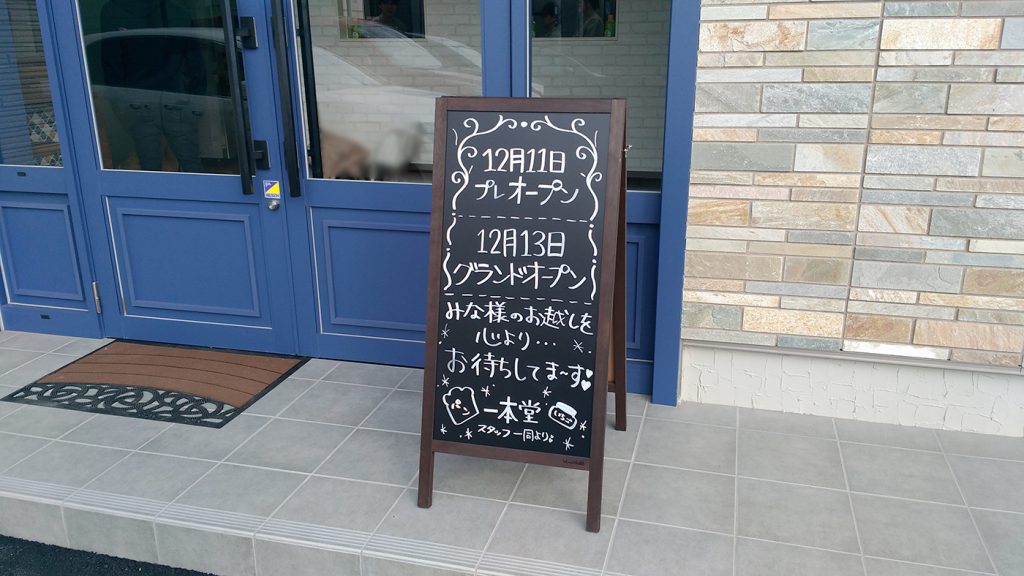 12月11日
プレオープン
12月13日
グランドオープン
みな様のお越しを
心より...
お待ちしてま〜す♥♥
パン
一本堂
いちご
スタッフ一同より♪